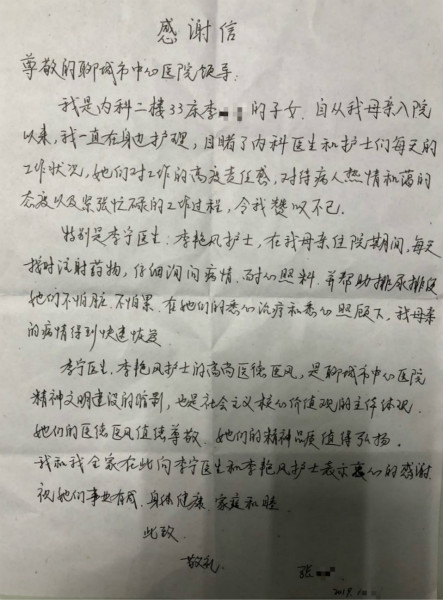 感谢信
尊敬的聊城市中心医院领导:
我是内科二楼33床李 的子女。自从我母亲入院
以来,我一直在身边护理,目睹了内科医生和护士们每天的
工作状况,她们对工作的高度责任感,对待病人热情和蔼的
态度以及紧张忙碌的工作过程,令我赞叹不已。
特别是李宁医生、李艳风护士,在我母亲住院期间,每天
按时注射药物,仔细询问病情、耐心照料、并帮助排尿排便
她们不怕脏、不怕累。在她们的悉心治疗和悉心照顾下,我母亲
的病情得到快速恢复。
李宁医生、李艳风护士的高尚医德医风,是聊城市中心医院
精神文明建设的缩影,也是社会主义核心价值观的主体体现。
她们的医德医风值得尊敬、她们的精神品质值得弘扬。
我和我全家在此向李宁医生和李艳风护士表示衷心的感谢,
祝她们事业有成、身体健康、家庭和睦。
此致
敬礼
张